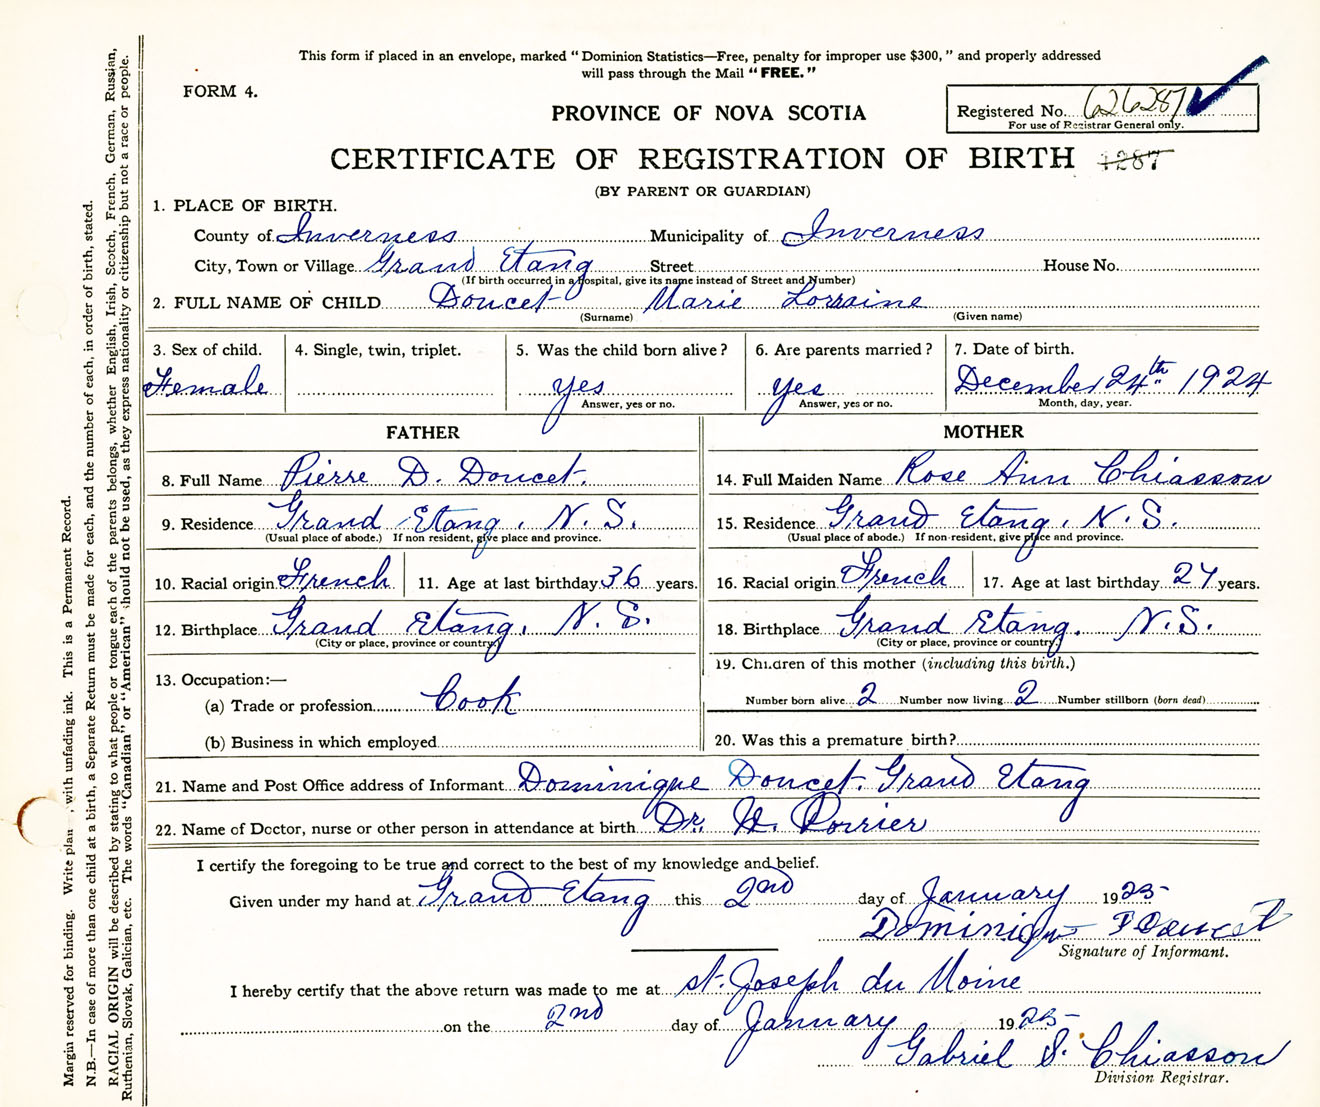 This form if placed in an envelope, marked "Dominion Statistics—Free, penalty for improper use $300," and properly addressed
will pass through the Mail "FREE."
FORM 4.
PROVINCE OF NOVA SCOTIA
Registered No. 626287
For use of Registrar General only.
CERTIFICATE OF REGISTRATION OF BIRTH 1287
(BY PARENT OR GUARDIAN)
1. PLACE OF BIRTH.
County of Inverness Municipality of Inverness
City, Town or Village Grand Etang Street House No.
(If birth occurred in a hospital, give its name instead of Street and Number)
2. FULL NAME OF CHILD Doucet Marie Lorraine
(Surname) (Given name)
3. Sex of child. 4. Single, twin, triplet. 5. Was the child born alive? 6. Are parents married? 7. Date of birth.
Female yes yes December 24th 1924
Answer, yes or no. Answer, yes or no. Month, day, year.
FATHER MOTHER
8. Full Name Pierre D. Doucet. 14. Full Maiden Name Rose Ann Chiasson
9. Residence Grand Etang, N. S. 15. Residence Grand Etang, N. S.
(Usual place of abode.) If non resident, give place and province. (Usual place of abode.) If non-resident, give place and province.
10. Racial origin French 11. Age at last birthday 36 years. 16. Racial origin French 17. Age at last birthday 27 years.
12. Birthplace Grand Etang, N. S. 18. Birthplace Grand Etang, N. S.
(City or place, province or country) (City or place, province or country)
13. Occupation:— 19. Children of this mother (including this birth.)
(a) Trade or profession Cook Number born alive 2 Number now living 2 Number stillborn (born dead)
(b) Business in which employed 20. Was this a premature birth?
21. Name and Post Office address of Informant Dominique Doucet. Grand Etang
22. Name of Doctor, nurse or other person in attendance at birth Dr. H. Poirrier
I certify the foregoing to be true and correct to the best of my knowledge and belief.
Given under my hand at Grand Etang this 2nd day of January 1925
Dominique Doucet
Signature of Informant.
I hereby certify that the above return was made to me at St. Joseph du Moine
on the 2nd day of January 1925
Gabriel S. Chiasson
Division Registrar.
Margin reserved for binding. Write plain, with unfading ink. This is a Permanent Record.
N.B.—In case of more than one child at a birth, a Separate Return must be made for each, and the number of each, in order of birth, stated.
RACIAL ORIGIN will be described by stating to what people or tongue each of the parents belongs, whether English, Irish, Scotch, French, German, Russian,
Ruthenian, Slovak, Galician, etc. The words "Canadian" or "American" should not be used, as they express nationality or citizenship but not a race or people.